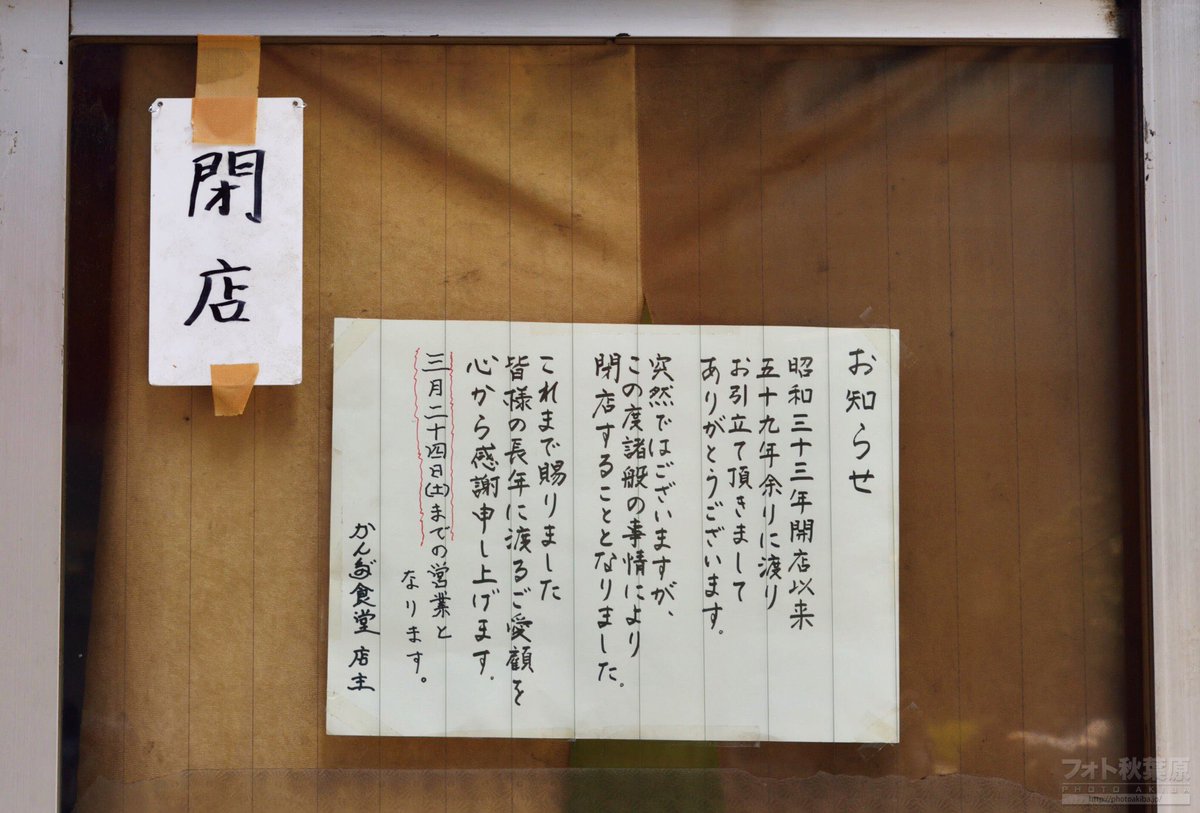 閉店
お知らせ
昭和三十三年開店以来
五十九年余りに渡り
お引立て頂きまして
ありがとうございます。
突然ではございますが、
この度諸般の事情により
閉店することとなりました。
これまで賜りました
皆様の長年に渡るご愛顧を
心から感謝申し上げます。
三月二十四日(土)までの営業と
なります。
かんだ食堂 店主
フォト秋葉原
PHOTO AKIBA
http://photoakiba.jp/